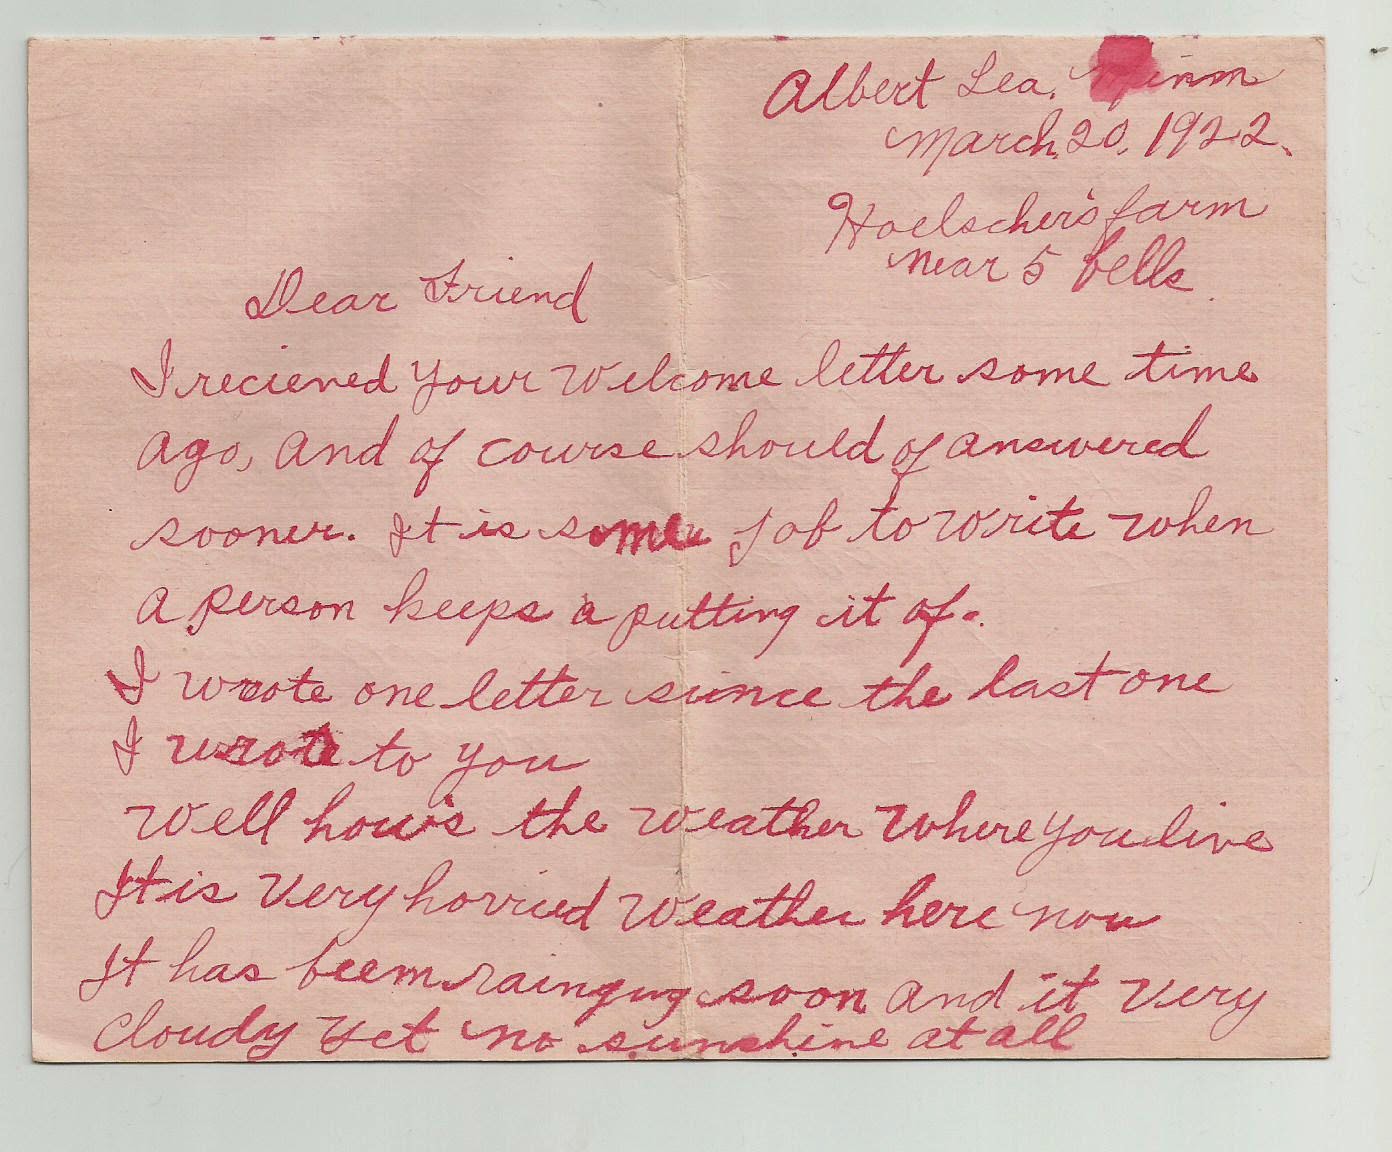 Albert Lea, Minn
March, 20, 1922.
Hoelscher's farm
near 5 bells.
Dear Friend
I recieved your welcome letter some time
ago, and of course should of answered
sooner. It is some job to write when
a person keeps a putting it of.
I wrote one letter since the last one
I wrote to you
Well how's the weather where you live
It is very horried weather here now
It has been soon and it very
cloudy yet no sunshine at all